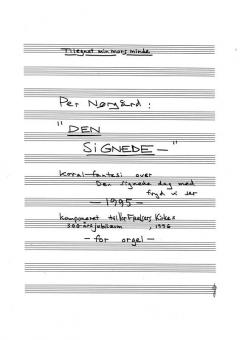 Tilegnet min mors minde
Per Nørgård:
"DEN
SIGNEDE—"
Koral-fantasi over
Den signede dag med
fryd vi ser
—1995—
komponeret til Vor Frelsers Kirkes
300-årsjubilæum, 1996
— for orgel —